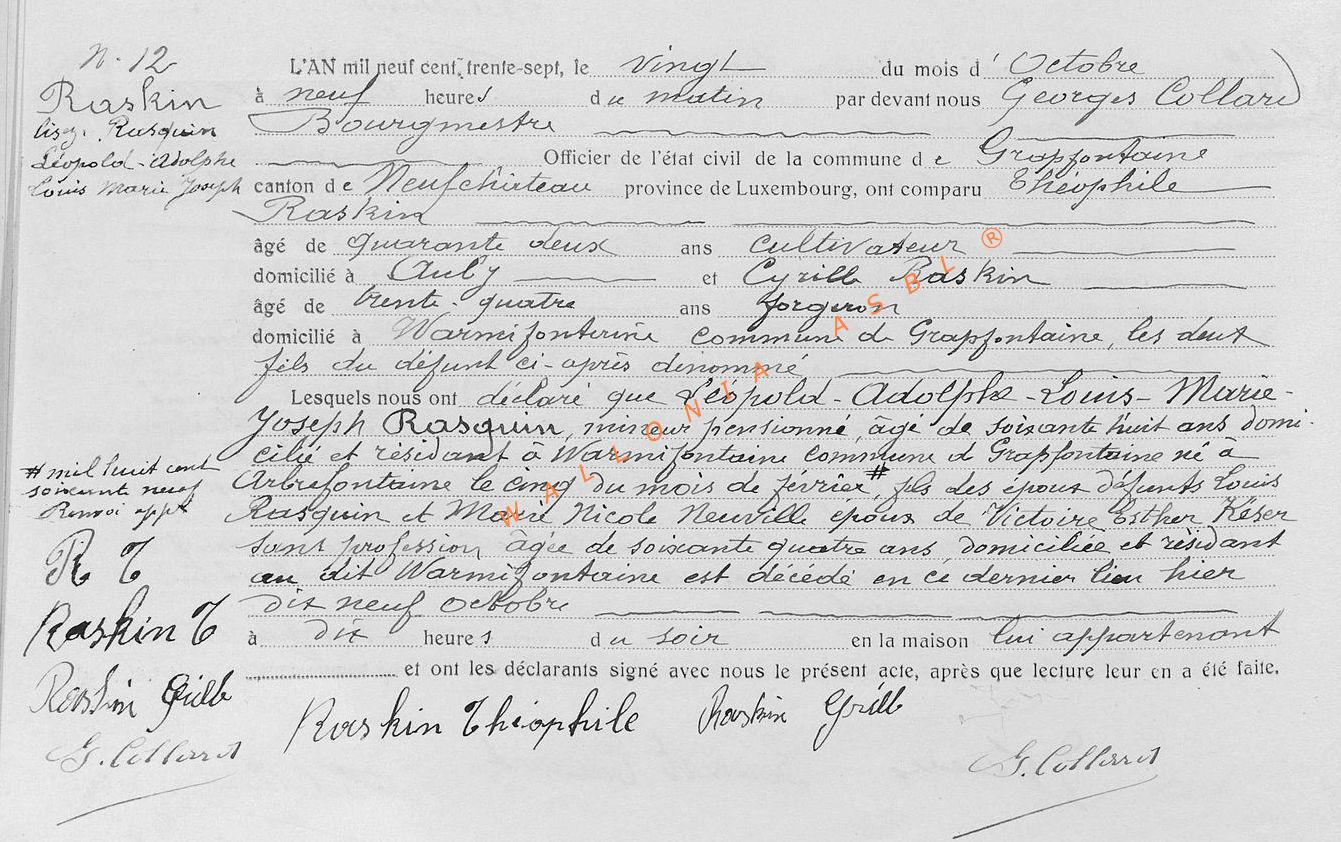 N. 12
Raskin
lisez: Rasquin
Léopold-Adolphe
Louis Marie Joseph
L'AN mil neuf cent trente-sept, le vingt du mois d' Octobre
à neuf heures du matin par devant nous Georges Collard
Bourgmestre
Officier de l'état civil de la commune de Grapfontaine
canton de Neufchâteau province de Luxembourg, ont comparu Théophile
Raskin
âgé de quarante deux ans cultivateur
domicilié à Auby et Cyrille Raskin
âgé de trente-quatre ans forgeron
domicilié à Warmifontaine commune de Grapfontaine, les deux
fils du défunt ci-après dénommé
Lesquels nous ont déclaré que Léopold-Adolphe-Louis-Marie-
Joseph Rasquin, mineur pensionné, âgé de soixante huit ans domi-
cilié et résidant à Warmifontaine commune d Grapfontaine né à
Arbrefontaine le cinq du mois de février #, fils des époux défunts Louis
Rasquin et Marie Nicole Neuville epoux de Victoire Esther Késer
sans profession âgée de soixante quatre ans, domiciliée et résidant
au dit Warmifontaine est décédé en ce dernier lieu hier
dix neuf octobre
à dix heures du soir en la maison lui appartenant
et ont les déclarants signé avec nous le présent acte, après que lecture leur en a été faite.
# mil huit cent
soixante neuf
Renvoi appr
R T
Raskin T
Raskin Cyrille
G. Collard
Raskin Théophile Raskin Cyrille
G. Collard
WALLONIA ASBL ®